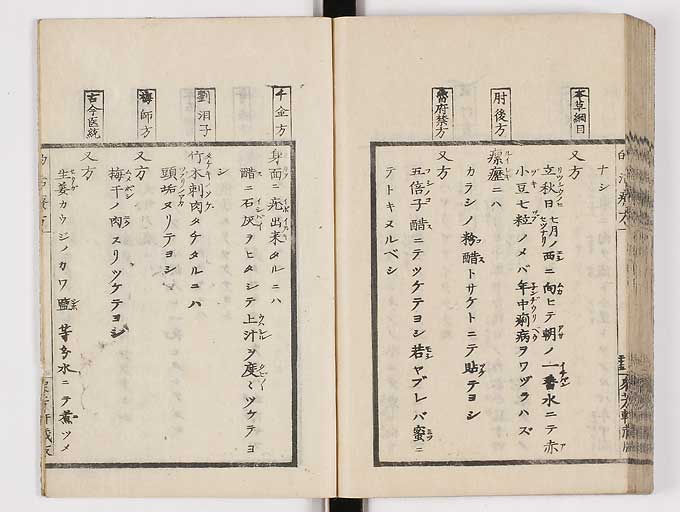 本草綱目
肘後方
ナシ
又方
立秋日七月ノ西ニ向ヒテ朝ノ一番水ニテ赤
小豆七粒ノメバ年中痢病ヲワヅラハズ
瘰癧ニハ
カラシノ粉醋トサケトニテ貼テヨシ
又方
五倍子醋ニテツケテヨシ若ヤブレバ蜜ニ
テトキヌルベシ
千金方
劉涓子
梅師方
古今医統
身面ニ疣出来タルニハ
醋ニ石灰ヲヒタシテ上汁ヲ度〻ツケテヨ
シ
竹木刺肉タチタルニハ
頭垢ヌリテヨシ
又方
梅干ノ肉スリツケテヨシ
又方
生姜カウジノカワ鹽等分水ニテ煮ツメ